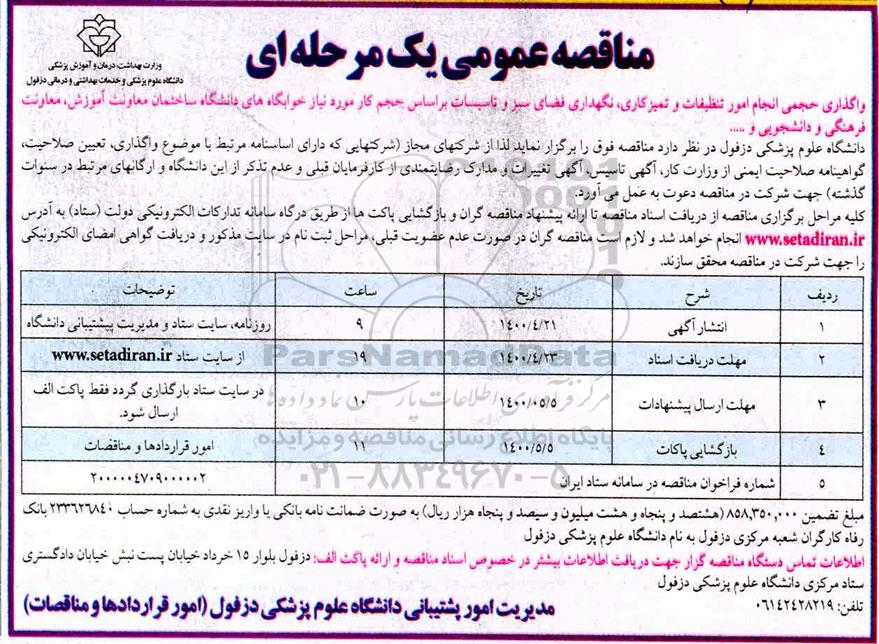 مناقصه عمومی یک مرحله ای
وزارت بهداشت، درمان و آموزش پزشکی
دانشگاه علوم پزشکی و خدمات بهداشتی و درمانی دزفول
واگذاری حجمی انجام امور تنظیفات و تمیزکاری، نگهداری فضای سبز و تاسیسات براساس حجم کار مورد نیاز خوابگاه های دانشگاه ساختمان معاونت آموزش، معاونت
فرهنگی و دانشجویی و .....
دانشگاه علوم پزشکی دزفول در نظر دارد مناقصه فوق را برگزار نماید لذا از شرکتهای مجاز (شرکتهایی که دارای اساسنامه مرتبط با موضوع واگذاری، تعیین صلاحیت،
گواهینامه صلاحیت ایمنی از وزارت کار، آگهی تاسیس، آگهی تغییرات و مدارک رضایتمندی از کارفرمایان قبلی و عدم تذکر از این دانشگاه و ارگانهای مرتبط در سنوات
گذشته) جهت شرکت در مناقصه دعوت به عمل می آورد.
کلیه مراحل برگزاری مناقصه از دریافت اسناد مناقصه تا ارائه پیشنهاد مناقصه گران و بازگشایی پاکت ها از طریق درگاه سامانه تدارکات الکترونیکی دولت (ستاد) به آدرس
www.setadiran.ir انجام خواهد شد و لازم است مناقصه گران در صورت عدم عضویت قبلی، مراحل ثبت نام در سایت مذکور و دریافت گواهی امضای الکترونیکی
را جهت شرکت در مناقصه محقق سازند.
ردیف شرح تاریخ ساعت توضیحات
۱ انتشار آگهی ۱۴۰۰/۴/۲۱ ۹ روزنامه، سایت ستاد و مدیریت پیشتیبانی دانشگاه
۲ مهلت دریافت اسناد ۱۴۰۰/۴/۲۳ ۱۹ از سایت ستاد www.setadiran.ir
۳ مهلت ارسال پیشنهادات ۱۴۰۰/۰۵/۵ ۱۰ در سایت ستاد بارگذاری گردد فقط پاکت الف
ارسال شود.
۴ بازگشایی پاکات ۱۴۰۰/۵/۵ ۱۱ امور قراردادها و مناقصات
۵ شماره فراخوان مناقصه در سامانه ستاد ایران ۲۰۰۰۰۰۴۷۰۹۰۰۰۰۰۲
ParsNamadData
مرکز فرآوری اطلاعات پارس نماد داده ها
پایگاه اطلاع رسانی مناقصه و مزایده
۰۲۱-۸۸۳۴۹۶۷۰-۵
مبلغ تضمین ۸۵۸,۳۵۰,۰۰۰ (هشتصد و پنجاه و هشت میلیون و سیصد و پنجاه هزار ریال) به صورت ضمانت نامه بانکی یا واریز نقدی به شماره حساب ۲۳۳۶۲۶۸۴۰ بانک
رفاه کارگران شعبه مرکزی دزفول به نام دانشگاه علوم پزشکی دزفول
اطلاعات تماس دستگاه مناقصه گزار جهت دریافت اطلاعات بیشتر در خصوص اسناد مناقصه و ارائه پاکت الف: دزفول بلوار ۱۵ خرداد خیابان پست نبش خیابان دادگستری
ستاد مرکزی دانشگاه علوم پزشکی دزفول
تلفن: ۰۶۱۴۲۴۲۸۲۱۹
مدیریت امور پشتیبانی دانشگاه علوم پزشکی دزفول (امور قراردادها و مناقصات)